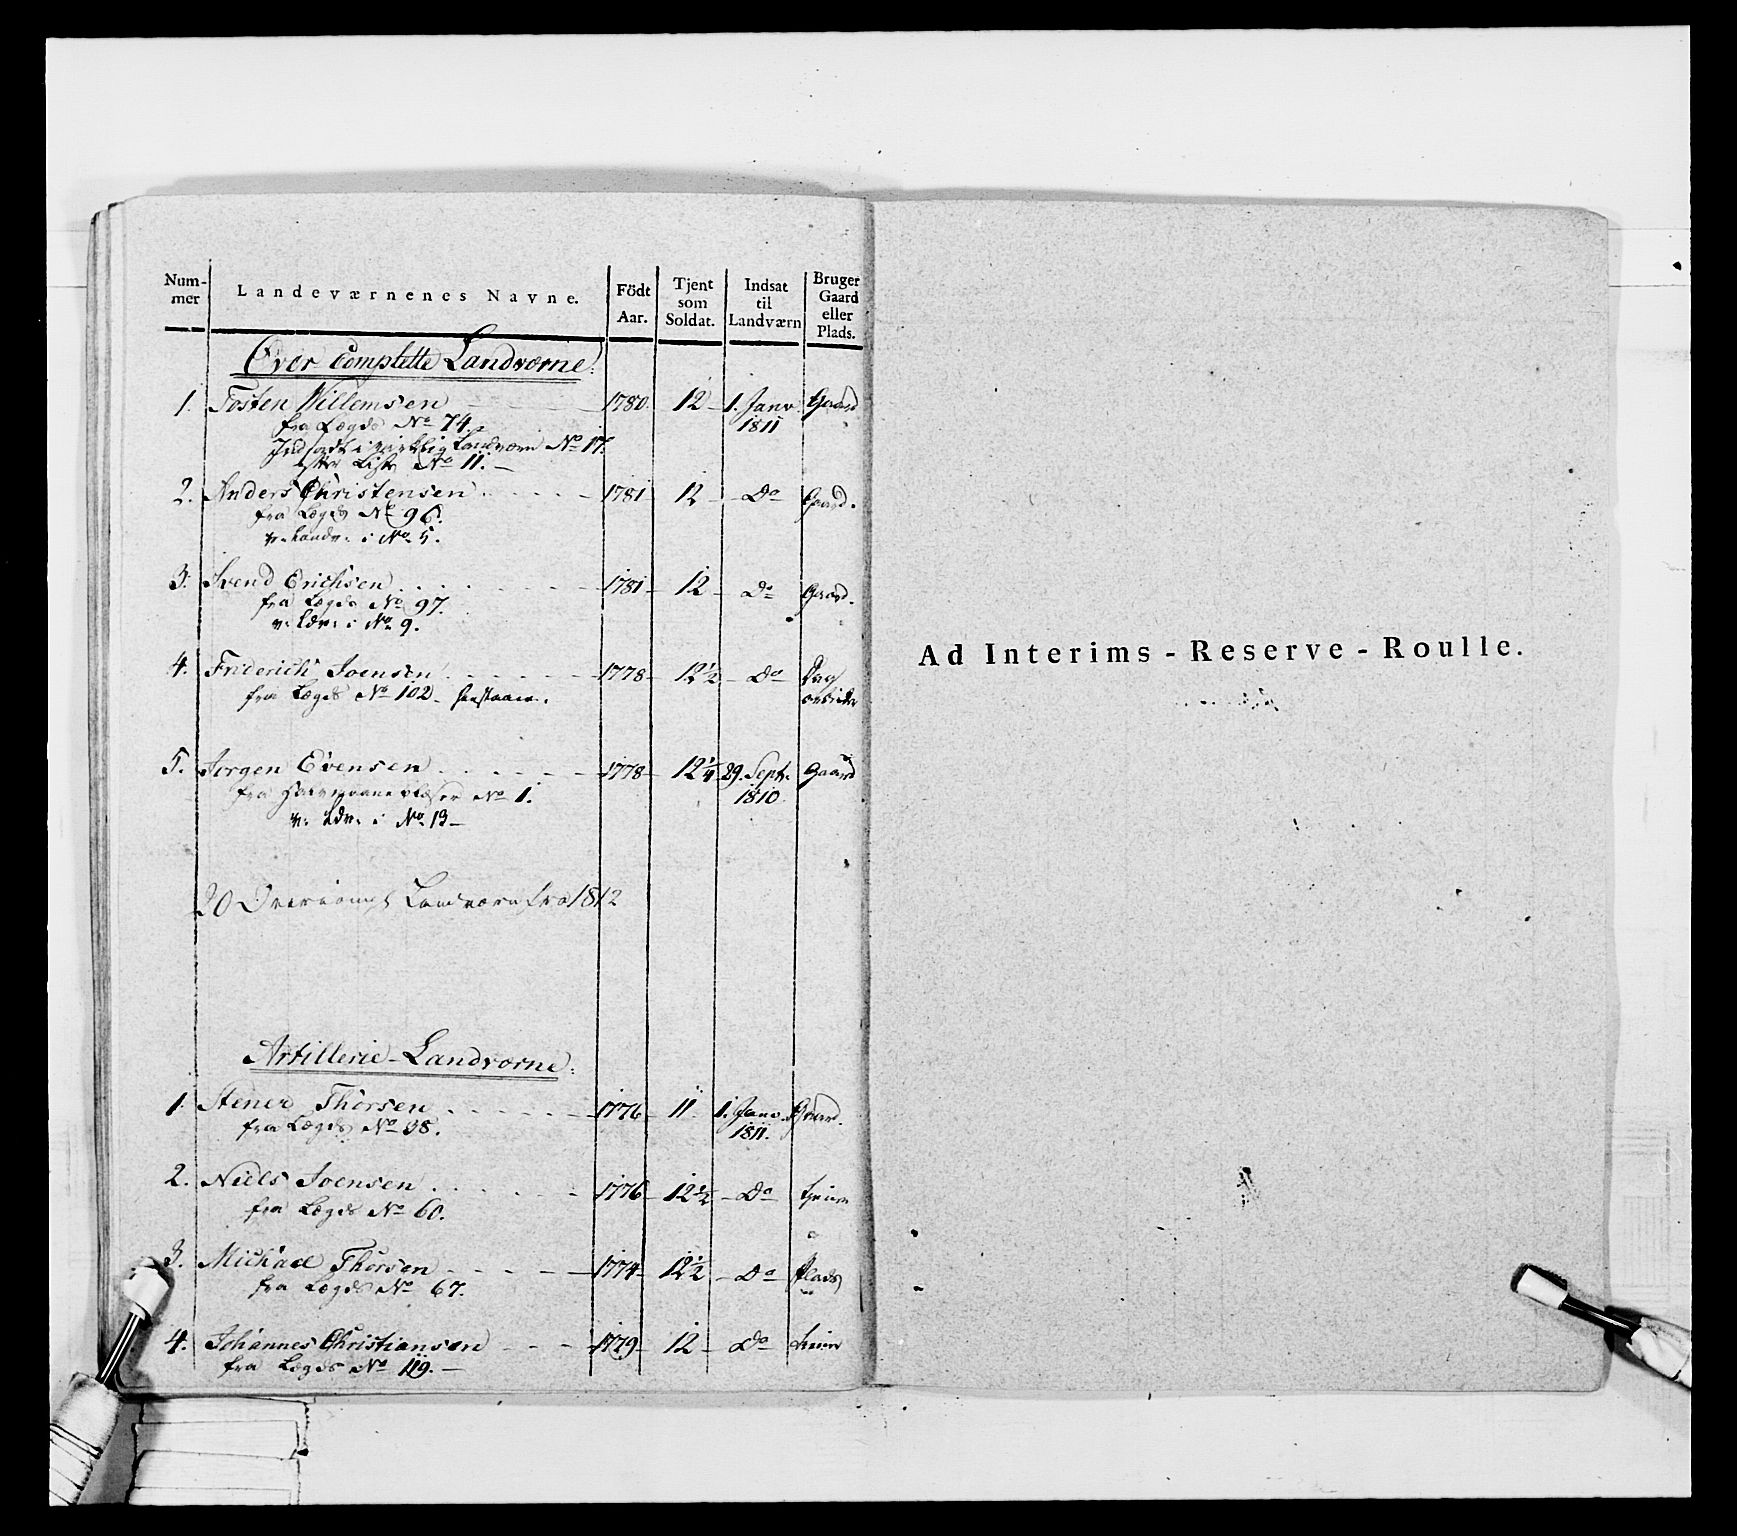 Num-
mer
Landeværnenes Navne.
Född
Aar.
Tjent
som
Soldat.
Indsat
til
Landværn
Bruger
Gaard
eller
Plads.
Over Complette Landværne.
1. Tosten Willemsen 1780. 12 1. Janv. Gaard
fra Lægds No 74. 1811
Indsadt i virkelig Landværn No 17.
efter Liste No 11.
2. Anders Christensen 1781 12 Do Gaard.
fra Lægds No 96.
v. Landv. i No 5.
3. Svend Erichsen 1781 12 Do Gaard.
fra Lægds No 97.
v. Ldv. i No 9.
4. Friderich Joensen 1778 12 1/2 Do
fra Lægds No 102.
5. Jørgen Evensen 1778 12 1/4 29. Septr. Gaard
fra No 1. 1810
v. Ldv. i No 13
20 Landværn fra 1812
Artillerie-Landværne.
1. Stener Thorsen 1776 11 1. Janv. Gaard.
fra Lægds No 38. 1811.
2. Niels Joensen 1776 12 1/2 Do
fra Lægds No 60.
3. Michael Thorsen 1774 12 1/2 Do Plads
fra Lægds No 67.
4. Johannes Christiansen 1779 12 Do
fra Lægds No 119.
Ad Interims-Reserve-Roulle.